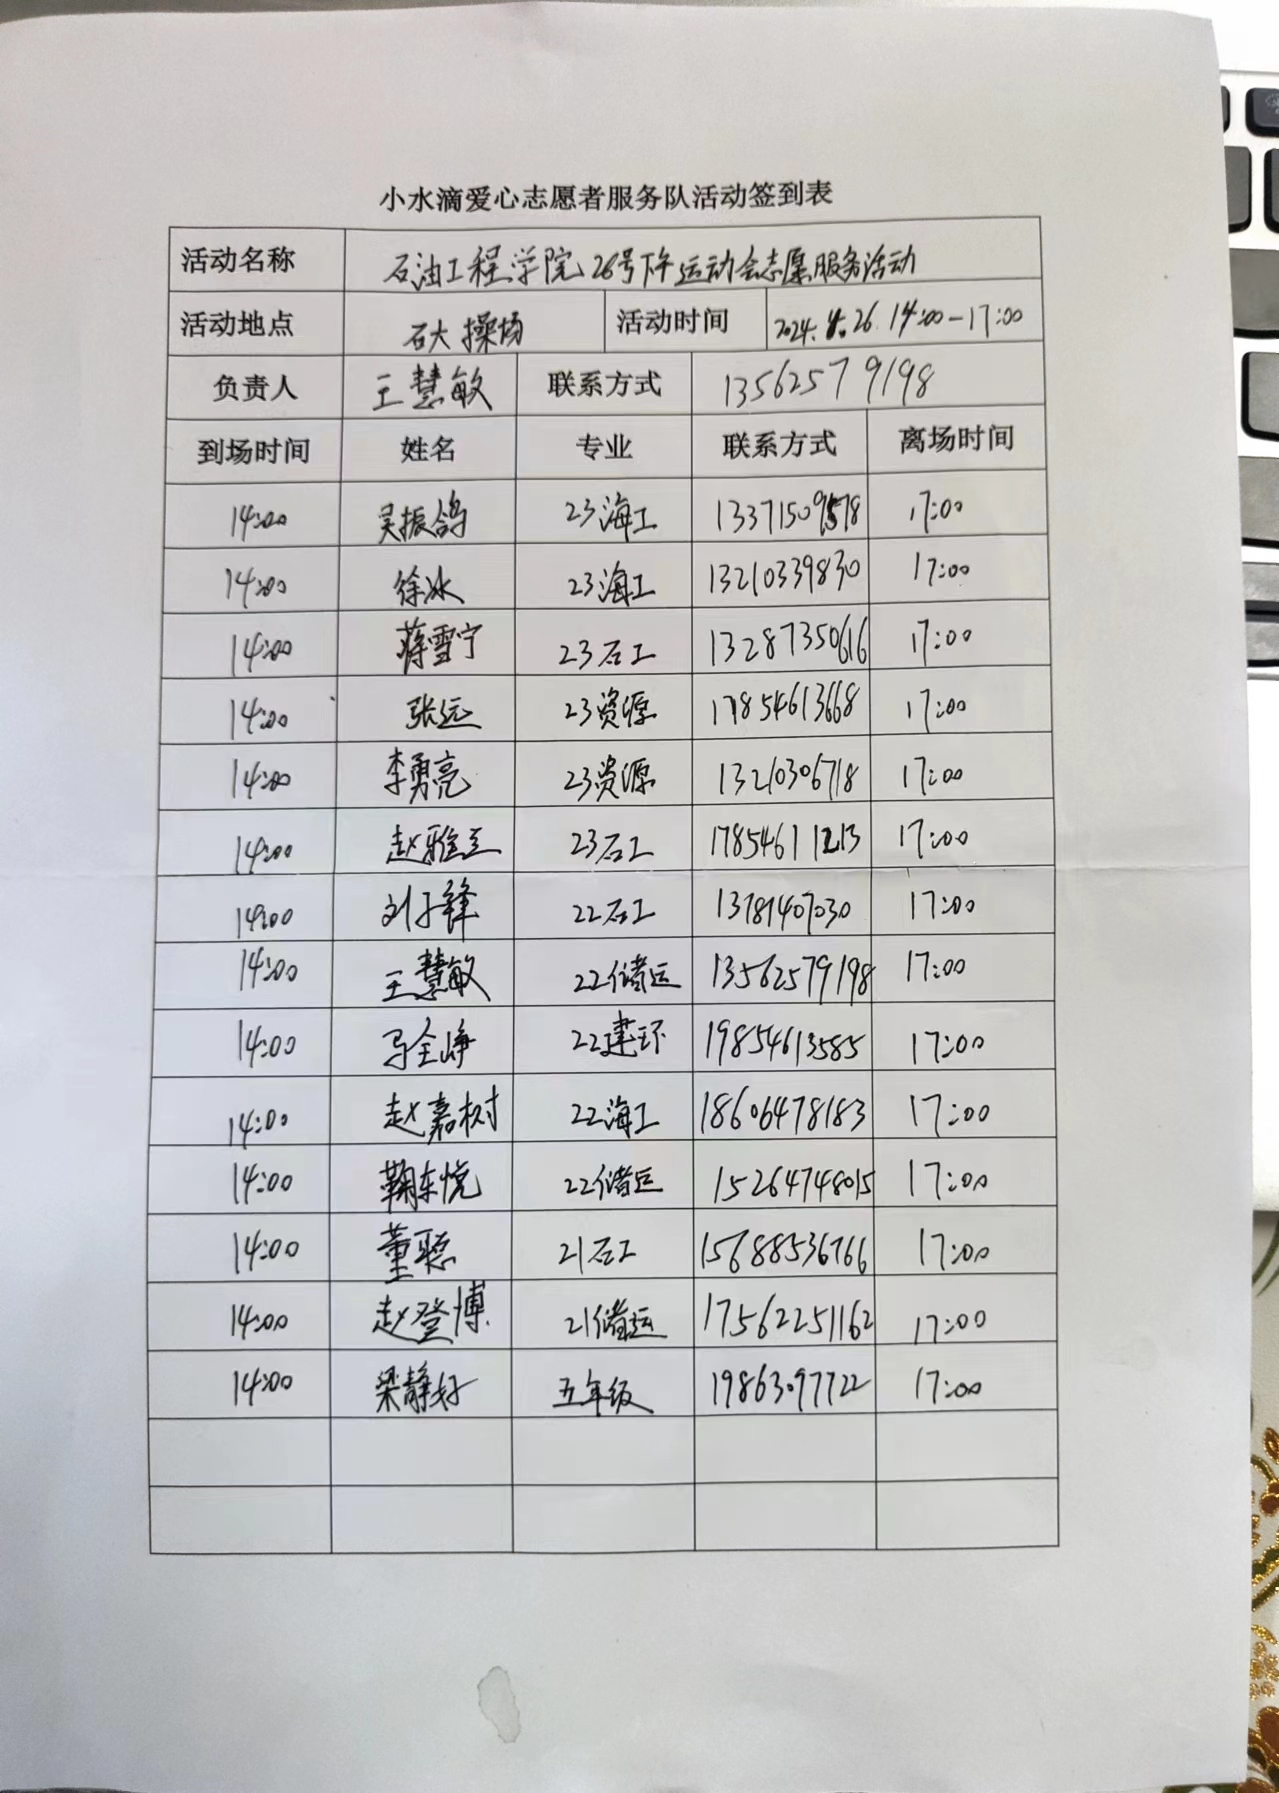 小水滴爱心志愿者服务队活动签到表
活动名称 石油工程学院26号下午运动会志愿服务活动
活动地点 石大操场 活动时间 2024.4.26. 14:00-17:00
负责人 王慧敏 联系方式 13562579198
到场时间 姓名 专业 联系方式 离场时间
14:00 吴振鸽 23海工 13371509578 17:00
14:00 徐冰 23海工 13210339830 17:00
14:00 蒋雪宁 23石工 13287350616 17:00
14:00 张远 23资源 17854613668 17:00
14:00 李勇亮 23资源 13210306718 17:00
14:00 赵雅兰 23石工 17854611213 17:00
14:00 刘子锋 22石工 13781407030 17:00
14:00 王慧敏 22储运 13562579198 17:00
14:00 马全峥 22建环 19854613585 17:00
14:00 赵嘉树 22海工 18606478183 17:00
14:00 鞠东悦 22储运 15264748015 17:00
14:00 董聪 21石工 15688536766 17:00
14:00 赵登博 21储运 17562251162 17:00
14:00 梁静好 五年级 19863097722 17:00